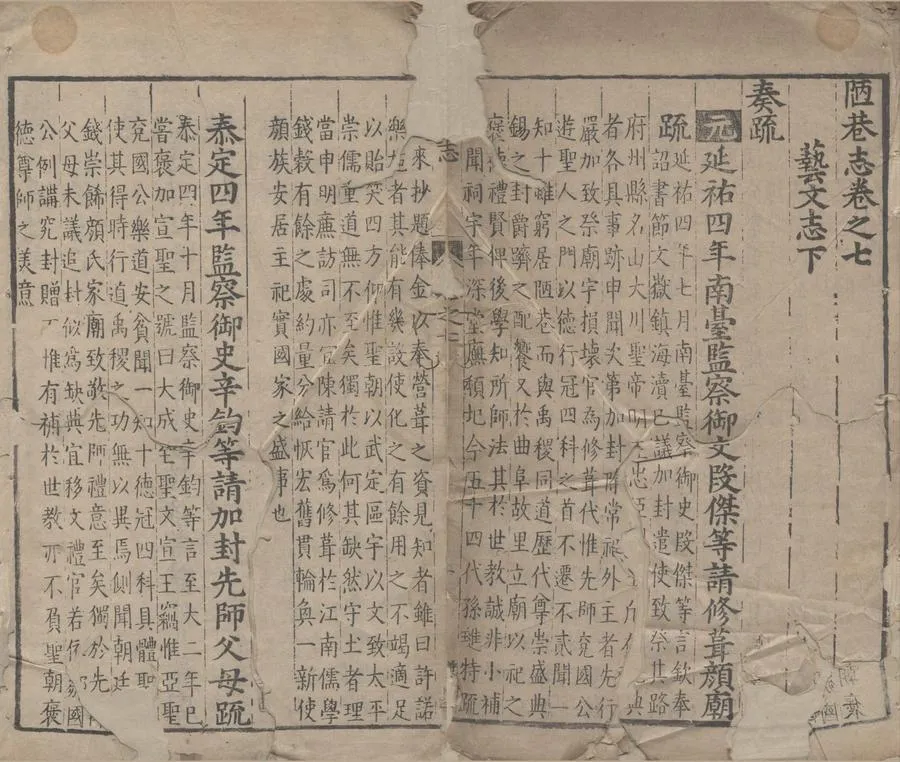 陋巷志卷之七
藝文志下
奏疏
元延祐四年南臺監察御史段傑等請修葺顏廟
疏延祐四年七月南臺監察御史段傑等言欽奉
詔書節文嶽鎮海瀆已議加封遣使致祭其路
府州縣名山大川聖帝明王忠臣
者各具事跡申聞次第加封除常祀外主者先行
嚴加致祭廟宇損壞官為修葺代惟先師兗國公
遊聖人之門以德行冠四科之首不遷不貳聞一
知十雖窮居陋巷而與禹稷同道歷代尊崇盛典
錫之封爵躋之配饗又於曲阜故里立廟以祀之
褒德禮賢俾後學知所師法其於世教誠非小補
聞祠宇年深堂廡頹圮今五十四代孫雖特疏
來抄題俸金以奉營葺之資見知者雖曰許諾
樂施者其能有幾設使化之有餘用之不竭適足
以貽笑四方仰惟聖朝以武定區宇以文致太平
崇儒重道無不至矣獨於此何其缺然守土者理
當申明廉訪司亦宜陳請官為修葺於江南儒學
錢穀有餘之處約量分給恢宏舊貫輪奐一新使
顏族安居主祀實國家之盛事也
泰定四年監察御史辛鈞等請加封先師父母疏
泰定四年十月監察御史辛鈞等言至大二年已
嘗褒加宣聖之號曰大成至聖文宣王竊惟亞聖
兗國公樂道安貧聞一知十德冠四科具體聖
使其得時行道禹稷之功無以異焉側聞朝廷
錢崇飾顏氏家廟致敬先師禮意至矣獨於先
父母未議追封似為缺典宜移文禮官若
公例講究封贈不惟有補於世教亦不負聖朝褒
德尊師之美意